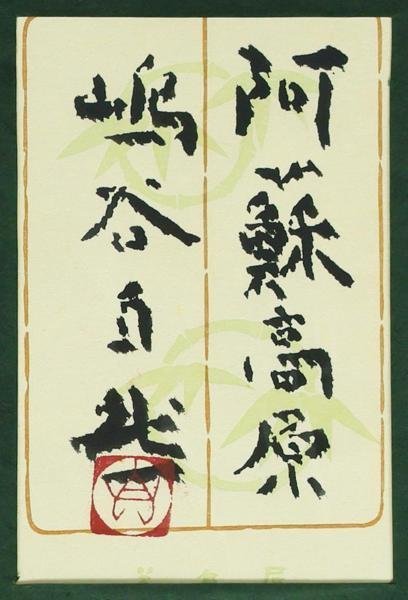 阿蘇高原
嶋谷自然